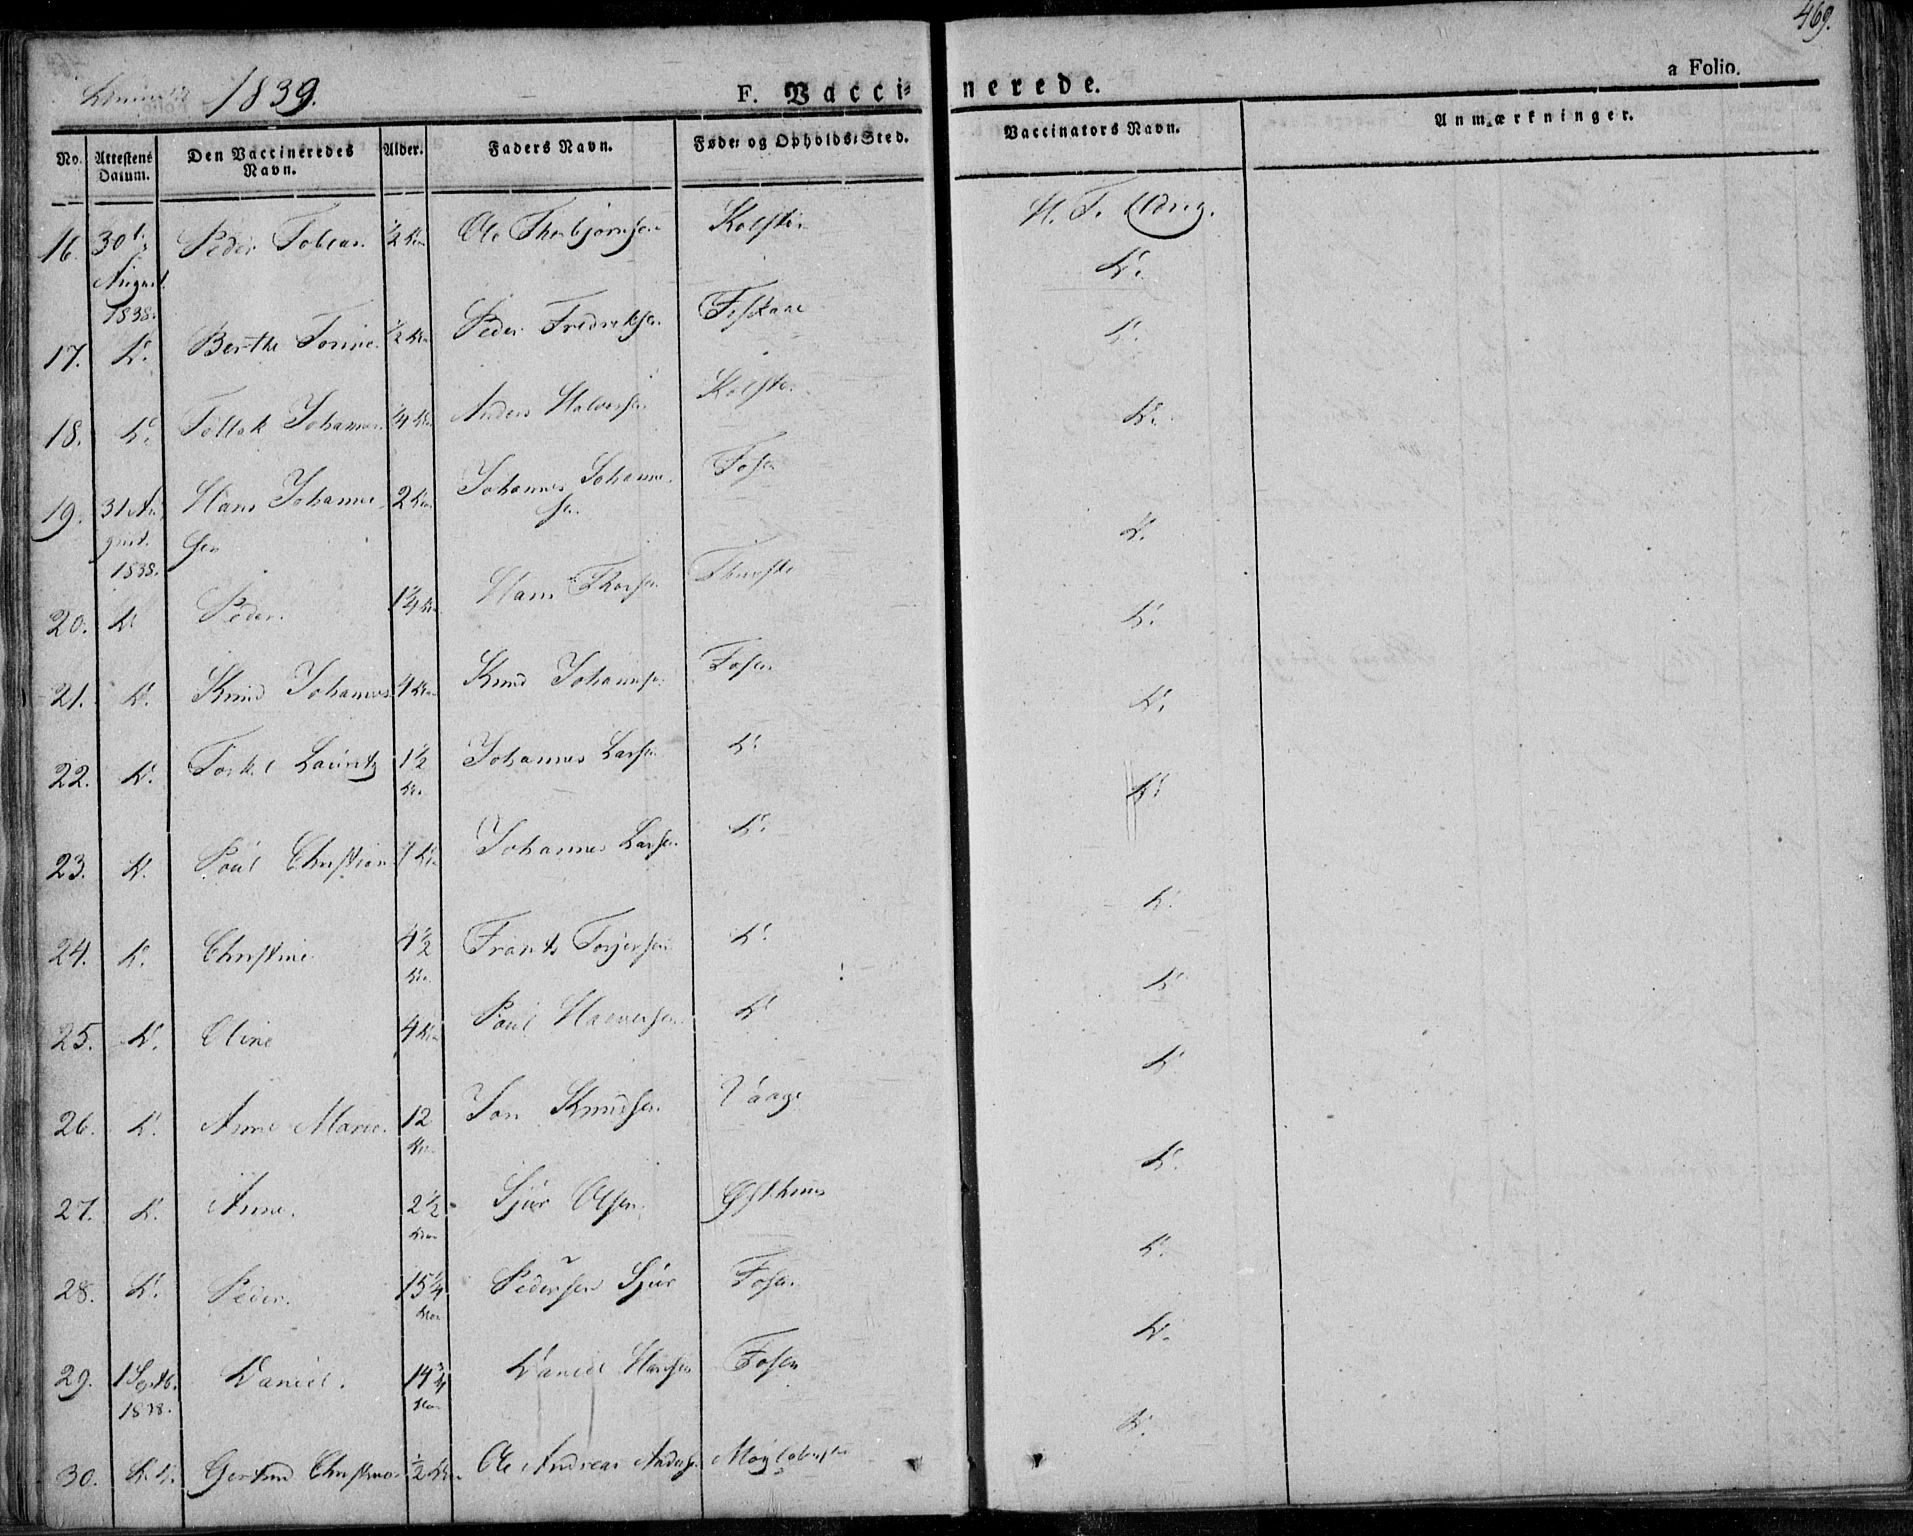 469.
1839.
F. Vaccinerede.
a Folio.
No. Attestens Datum. Den Vaccineredes Navn. Alder. Faders Navn. Føde- og Opholds-Sted. Vaccinators Navn. Anmærkninger.
16. 30t August 1838. Peder Tobias ½ Ole Thorbjørnsen Kolstø H. T.
17. D. Berthe Torine ½ Peder Fredriksen Fiskaae D.
18. D. Tollak Johannes ¼ Anders Halvorsen Kolstø D.
19. 31 August 1838. Hans Johannesen 2 Johannes Johannesen Fosen D.
20. D. Peder. 1¼ Hans Thorsen D.
21. D. Knud Johannes 4 Knud Johannesen Fosen D.
22. D. Torkel Lauritz 1½ Johannes Larsen D. D.
23. D. Poul Christian Johannes Larsen D. D.
24. D. Christine 4½ Frants Torjersen D. D.
25. D. Oline 4 Poul Halvorsen D. D.
26. D. Anne Marie. 12 Jon Knudsen Vaage D.
27. D. Anne. 2½ Sjur Olsen Østhuus D.
28. D. Peder. 15¼ Pedersen Sjur Fosen D.
29. 1 Septb. 1838. Daniel. 14¾ Daniel Hansen Fosen D.
30. D. D. Gertrud Christine ½ Ole Andreas Anders. D.